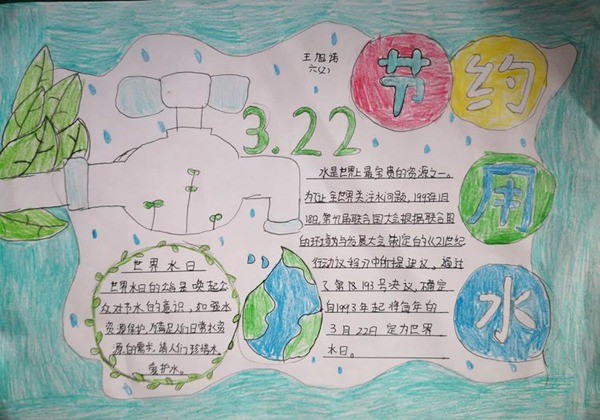 王旭
六(2)
节约
用
水
3.22
水是世界上最宝贵的资源之一。
为让全世界关注水问题,1993年1月
18日,第四七届联合国大会根据联合国
的环境与发展大会制定的《21世纪
行动议程》中所提建议,通过
了第 193号决议,确定
自1993年起将每年的
3月22日定为世界
水日。
世界水日
世界水日的 是唤起公
众对节水的意识,加强水
资源保护,满足人们日常水资
源的需求,请人们珍惜水,
爱护水。